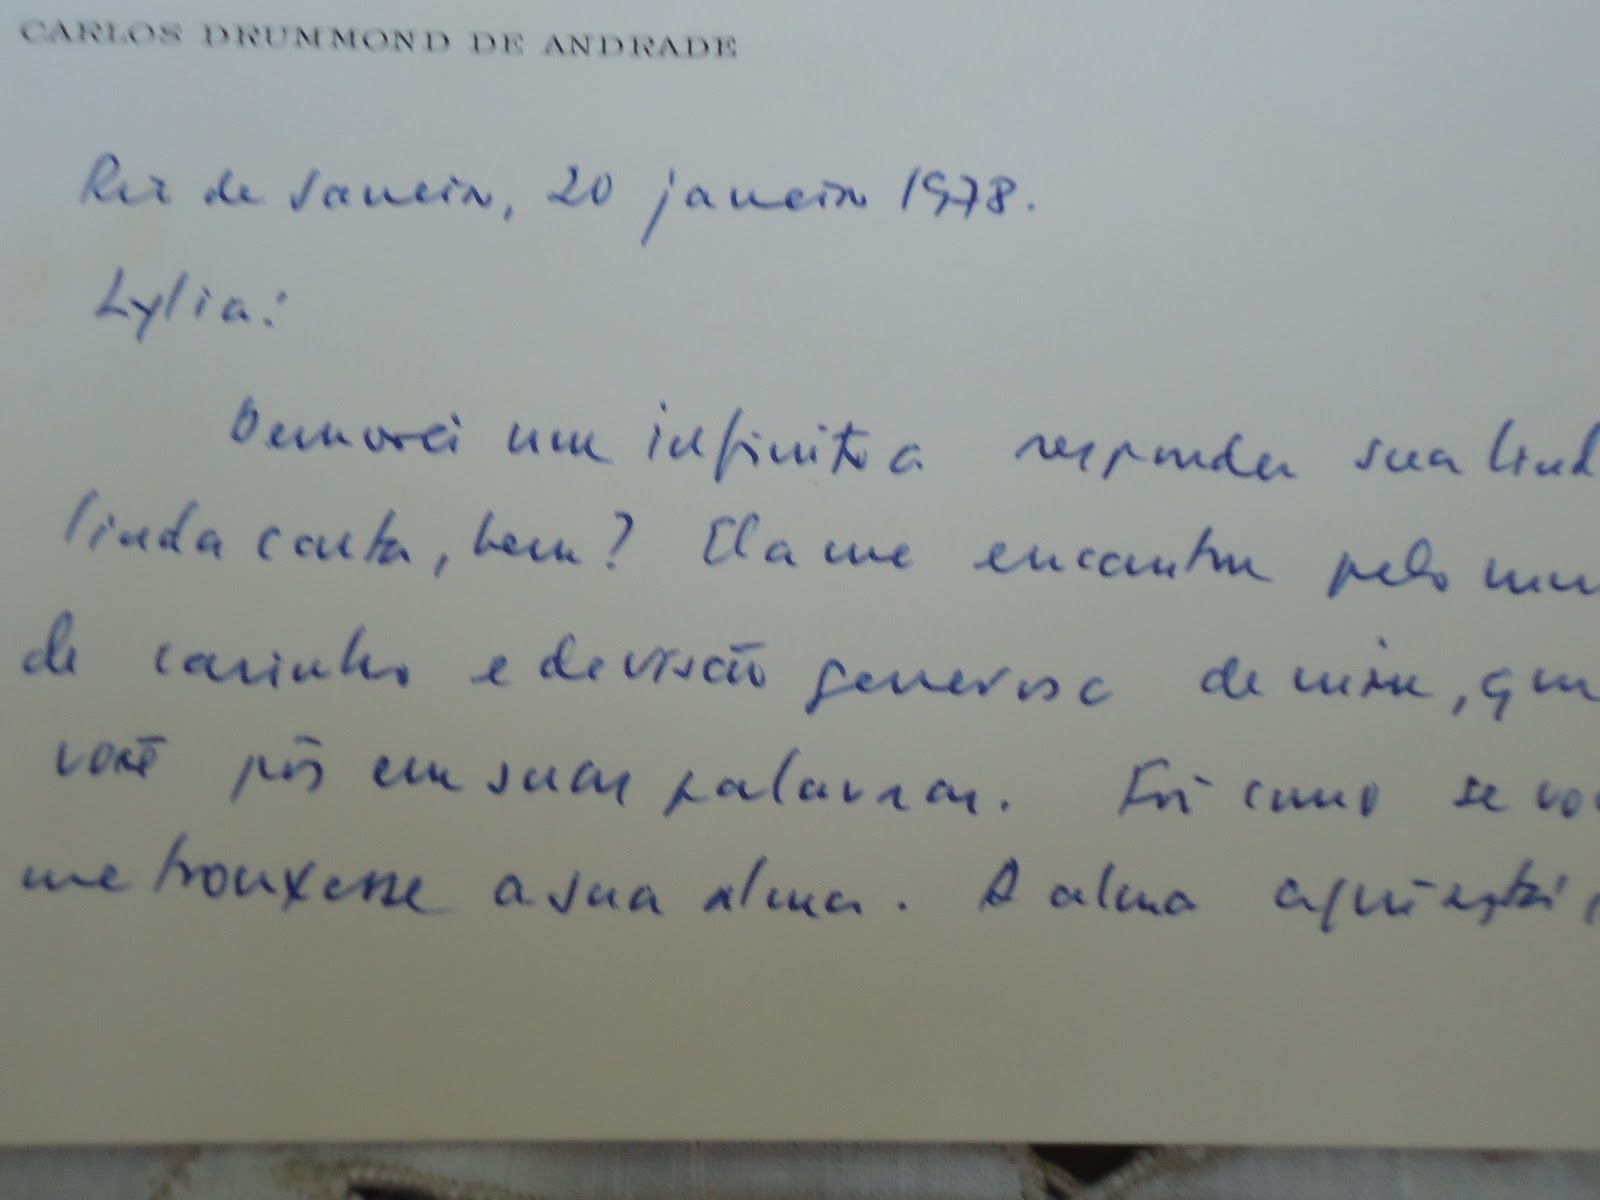 CARLOS DRUMMOND DE ANDRADE
Rio de Janeiro, 20 janeiro 1978.
Lylia:
Demorei um infinito a responder sua lind
linda carta, hem? Ela me encantou pelo mun
de carinho e de visão generosa de mim, que
você pôs em suas palavras. Foi como se vo
me trouxesse a sua alma. A alma aqui está,